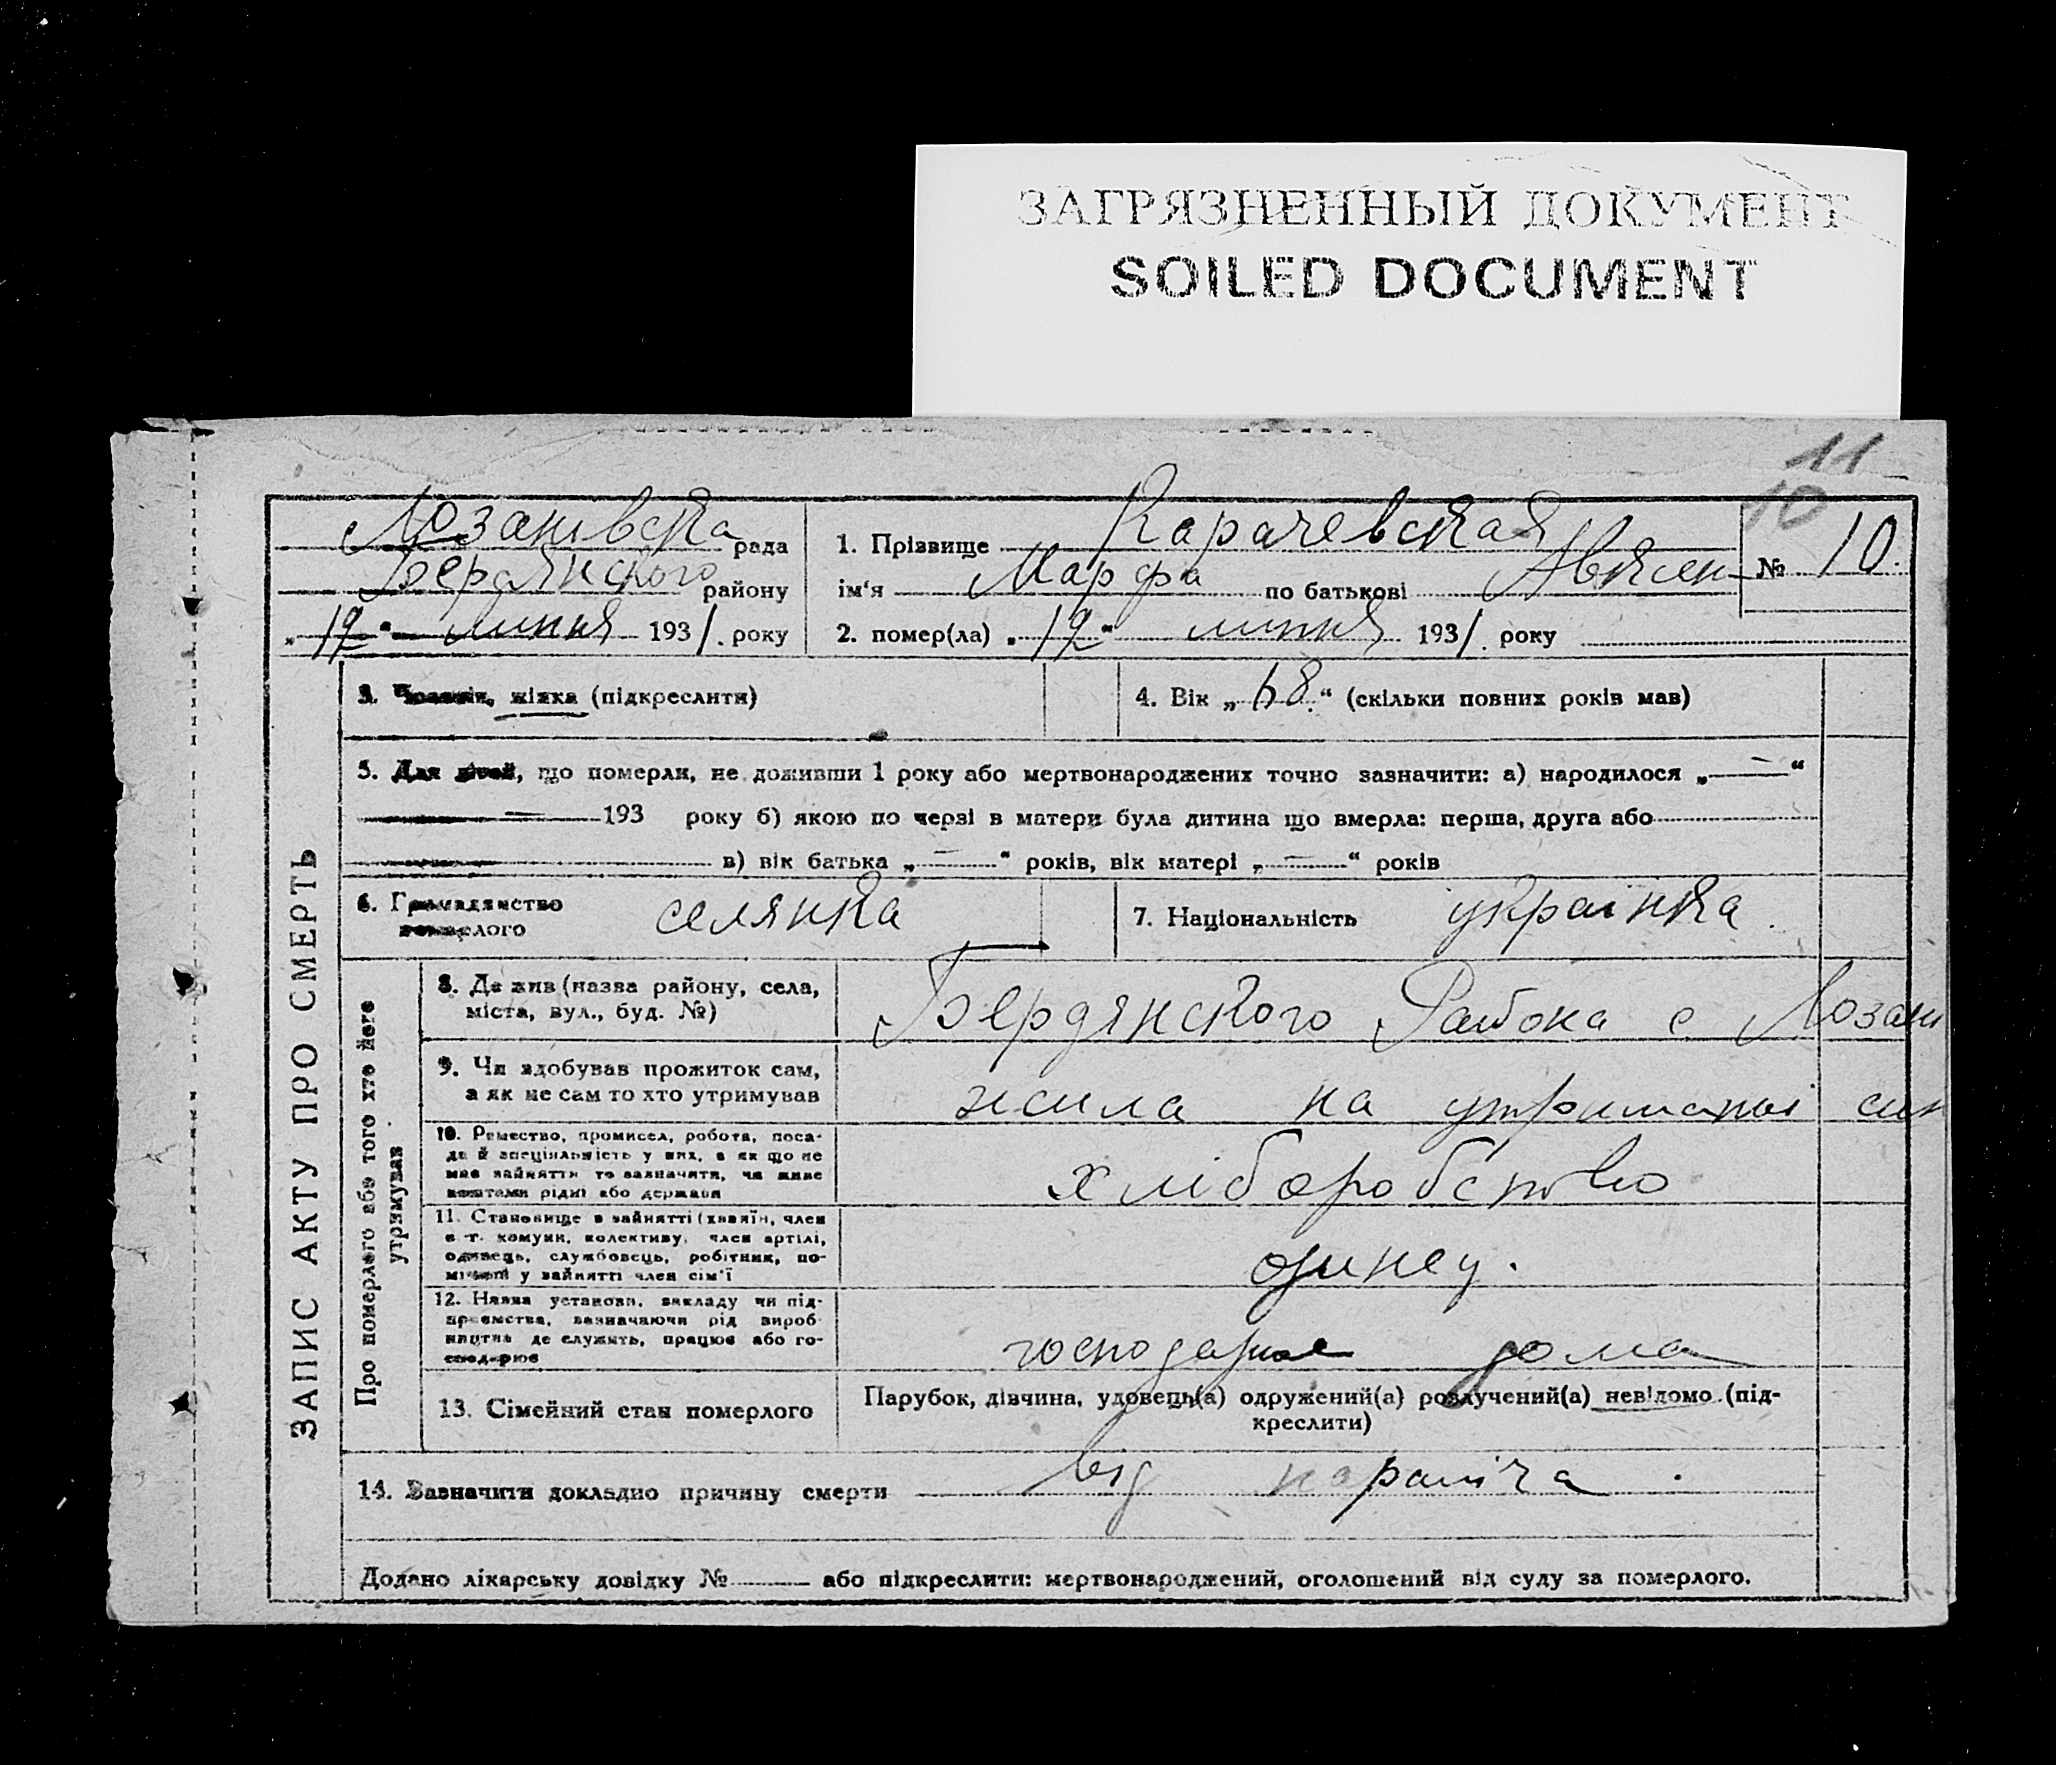 ЗАГРЯЗНЕННЫЙ ДОКУМЕНТ
SOILED DOCUMENT
11
10
Лозанівська рада
Бердянского району
„19“ липня 1931. року
1. Прізвище Карачевская
ім‘я Марфа по батькові
№ 10.
2. помер(ла) „19“ липня 1931. року
ЗАПИС АКТУ ПРО СМЕРТЬ
3. Чоловік, жінка (підкреслити)
4. Вік „68.“ (скільки повних років мав)
5. Для дітей, що померли, не доживши 1 року або мертвонароджених точно зазначити: а) народилося „—“
— 193 року б) якою по черзі в матери була дитина що вмерла: перша, друга або
в) вік батька „—“ років, вік матері „—“ років
6. Громадянство
померлого селянка
7. Національність українка
Про померлого або того хто його
утримував
8. Де жив (назва району, села,
міста, вул., буд. №)
Бердянского Района с Лозан
9. Чи здобував прожиток сам,
а як не сам то хто утримував
жила на утриманні син
10. Ремество, промисел, робота, поса-
да й спеціяльність у них, а як що не
мав зайняття то зазначити, чи живе
коштами рідні або держави
хліборобство
11. Становище в зайнятті (хазяїн, член
с.-г. комуни, колективу, член артілі,
одинець, службовець, робітник, по-
мічний у зайнятті член сім'ї
12. Назва установи, закладу чи під-
приємства, зазначаючи рід вироб-
ництва де служить, працює або го-
сподарює
господарює дома
13. Сімейний стан померлого
Парубок, дівчина, удовець(а) одружений(а) розлучений(а) невідомо (під-
креслити)
14. Зазначити докладно причину смерти від параліча.
Додано лікарську довідку № або підкреслити: мертвонароджений, оголошений від суду за померлого.